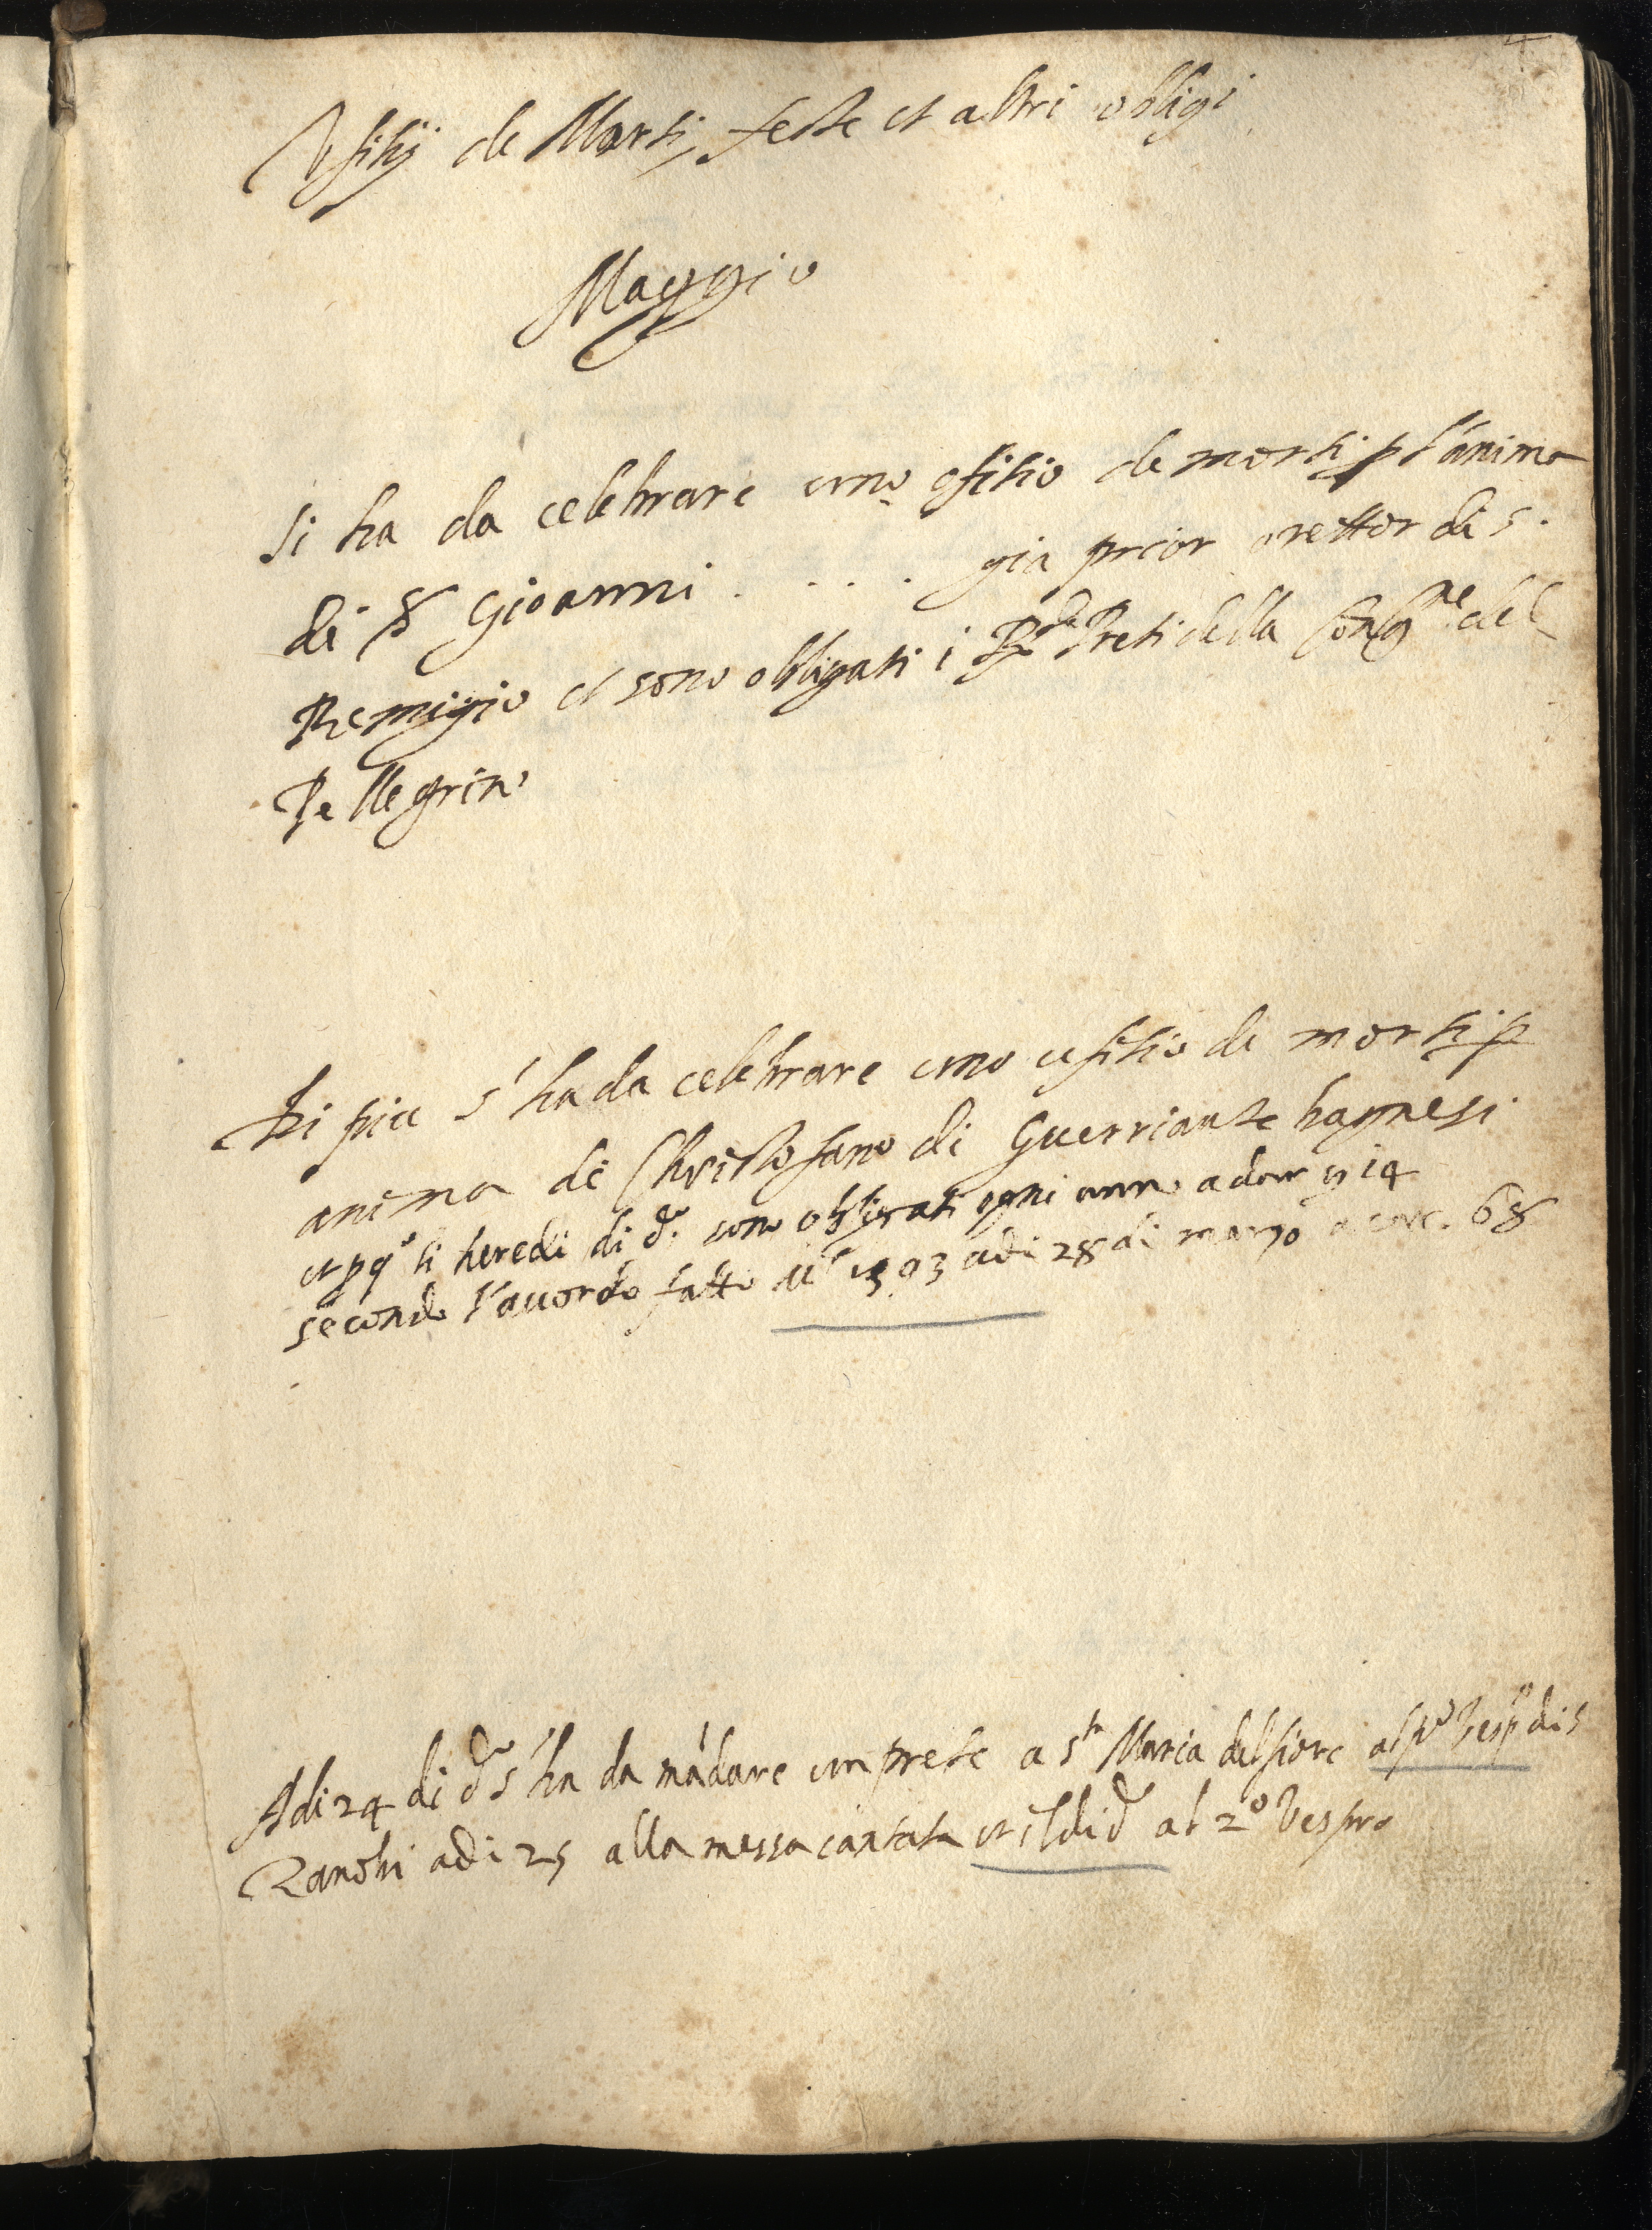 4
Vfitij de Morti, feste et altri obligi
Maggio
Si ha da celebrare uno ofitio de morti p l'anima
di Gioanni . . . . gia prior o rettor di S.
Remigio et sono obligati i R.di Preti della Cong.ne del
Pellegrino
Di piu s'ha da celebrare uno ufitio de morti p
anima di Christofano di Guerriante bagnesi
et pq.o li heredi di d.o sono obligati ogni anno a dar 14
secondo l'acordo fatto 1593 adi 28 di marzo a car. 68
Adi 24 di d.o s'ha da mādare un prete a S.ta Maria del fiore al p.o Vesp.o di S
Zanobi adi 25 alla messa cantata et il di d.o al 2.o Vespro